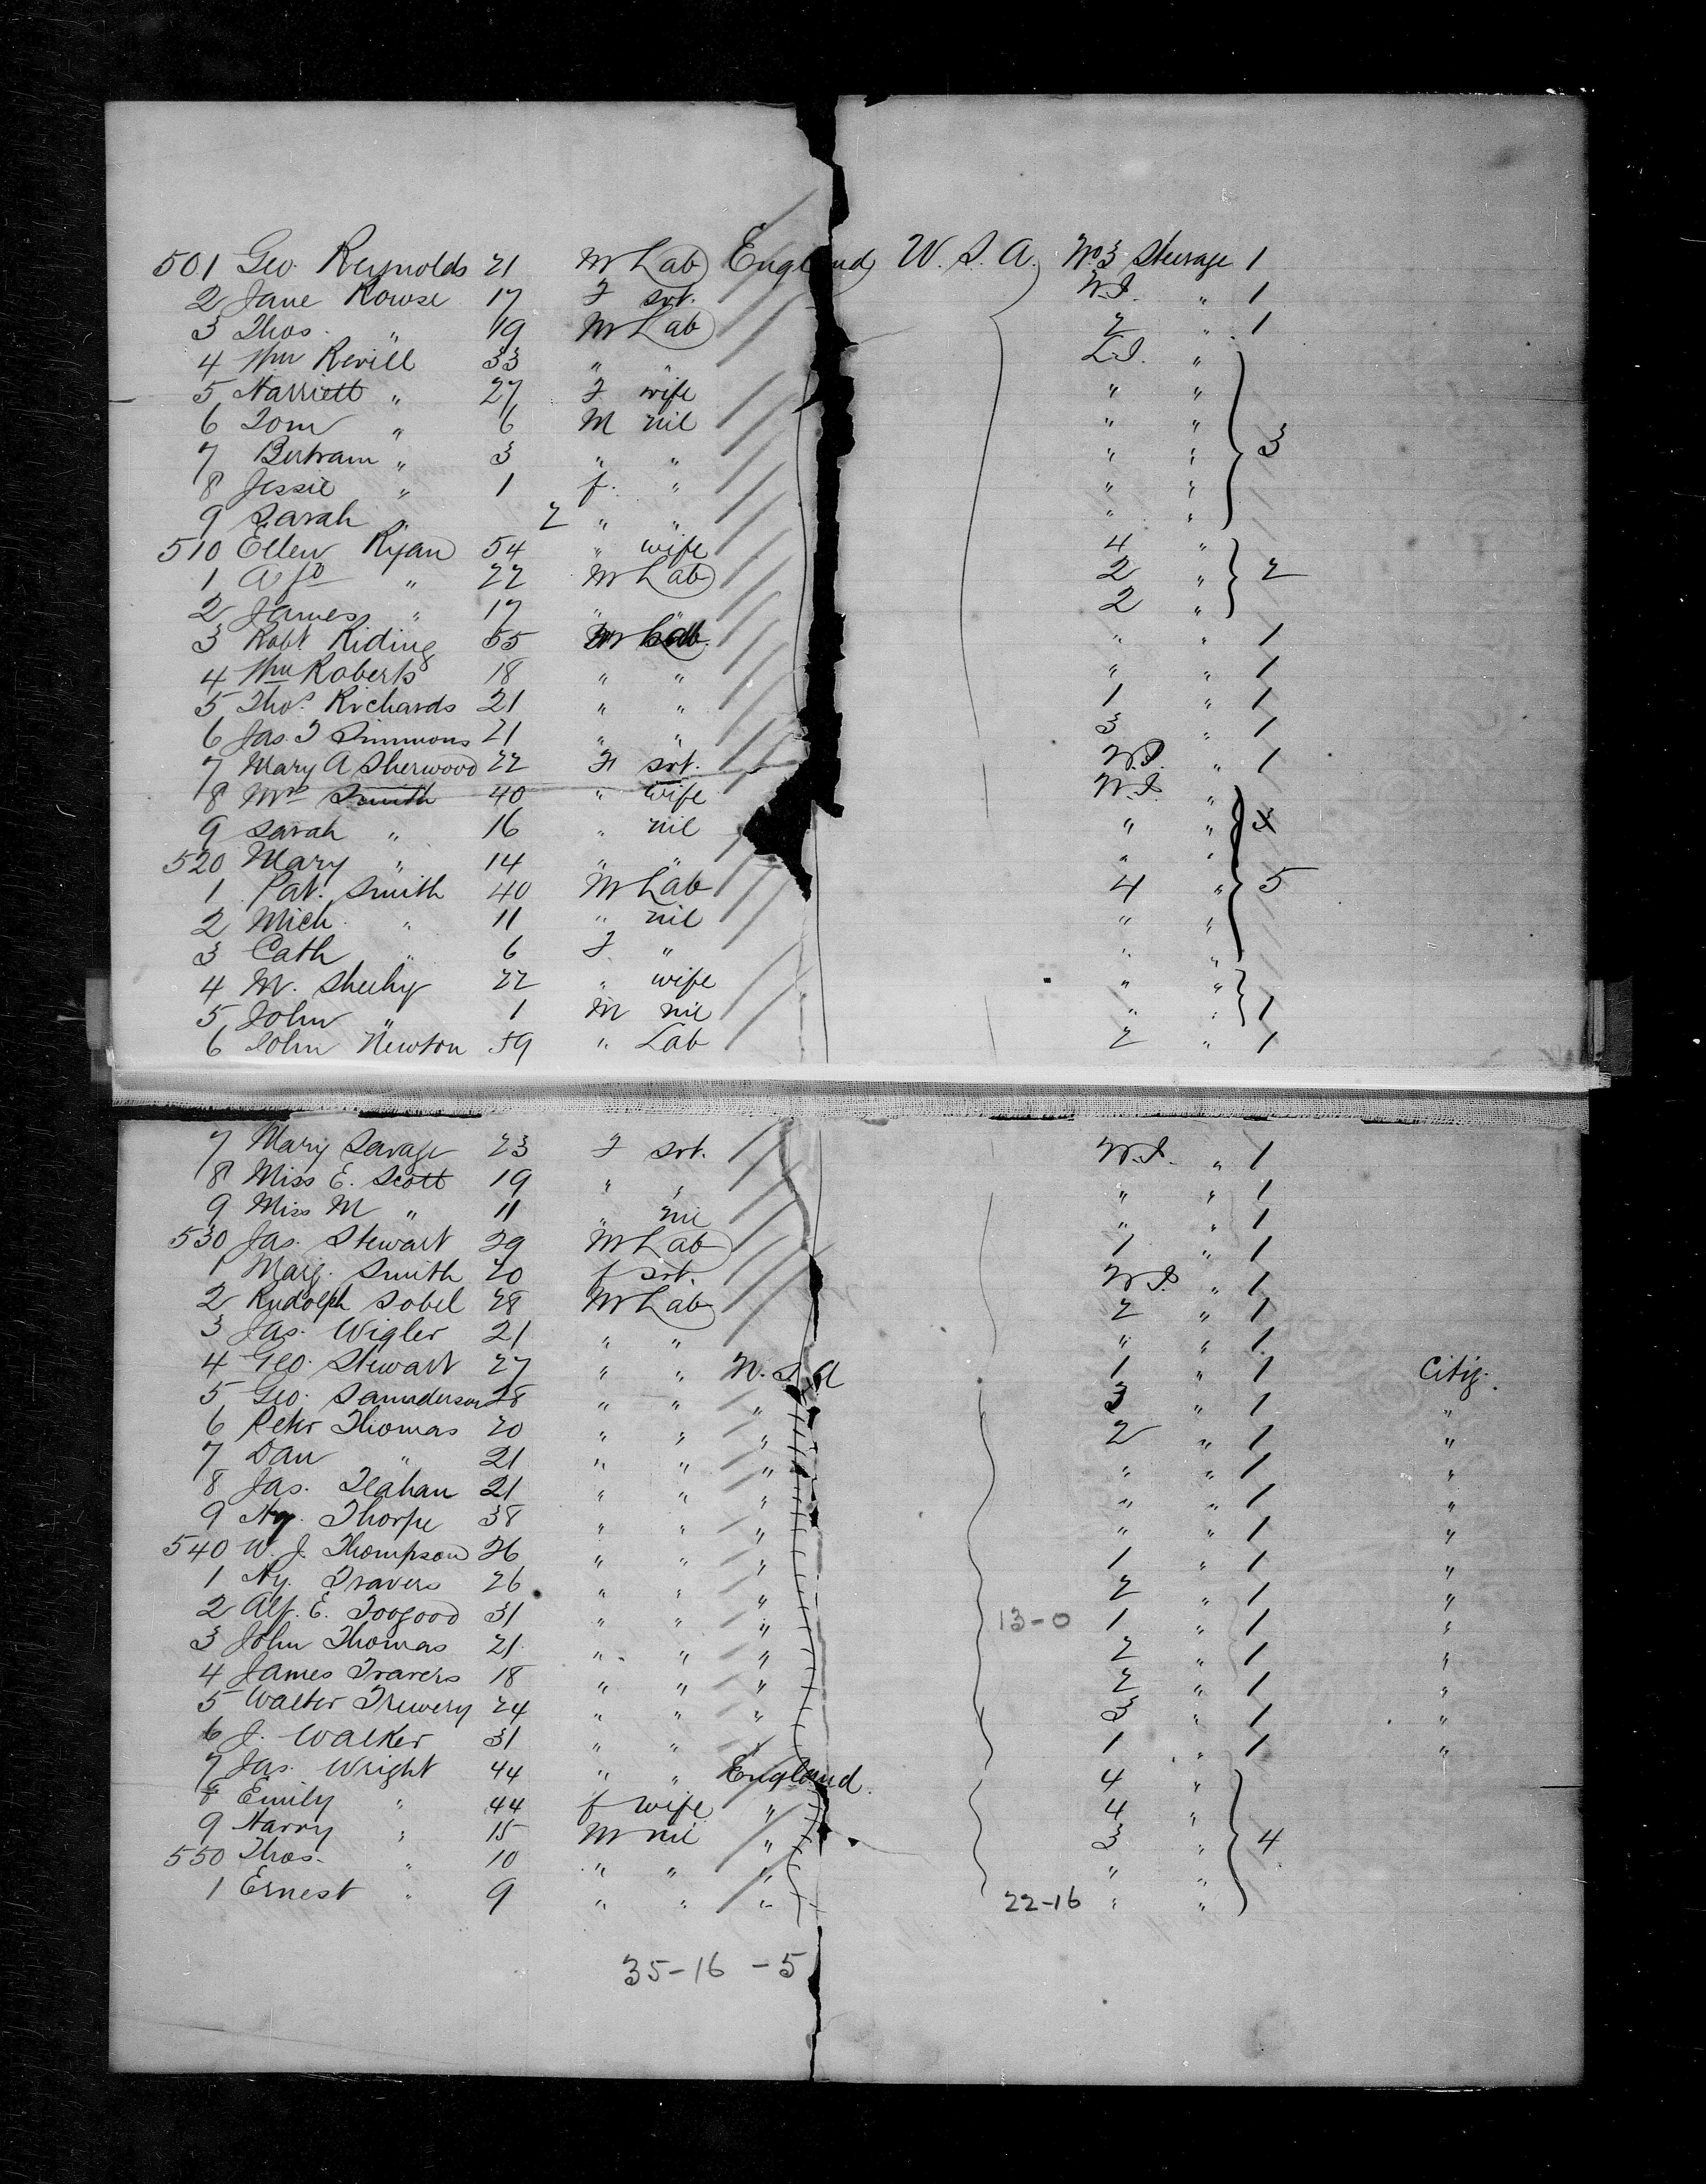 501 Geo. Reynolds 21 M Lab England U.S.A. No 3 Steerage 1
2 Jane Rowse 17 F svt. W.I. " 1
3 Thos. " 19 M Lab 2 " 1
4 Wm Revill 33 " " L.I. "
5 Harriett " 27 F wife " "
6 Tom " 6 M nil " "
7 Bertram " 3 " " " " 3
8 Jessie " 1 f. " " "
9 Sarah " 2 " " " "
510 Ellen Ryan 54 " wife 4 "
1 " 22 M Lab 2 " 2
2 James " 17 " " 2 "
3 Robt Riding 55 M Lab. " " 1
4 Wm Roberts 18 " " " " 1
5 Thos. Richards 21 " " 1 " 1
6 Jas. T Simmons 21 " " 3 " 1
7 Mary A Sherwood 22 F svt. W.I. " 1
8 Mrs Smith 40 " wife W.I. "
9 Sarah " 16 " nil " " 3
520 Mary " 14 " " " "
1 Pat. Smith 40 M Lab 4 " 5
2 Mich. " 11 " nil " "
3 Cath " 6 F " " "
4 M. Sheehy 22 " wife " "
5 John " 1 M nil " " 1
6 John Newton 59 " Lab 2 " 1
7 Mary Savage 23 F svt. W.I. " 1
8 Miss E. Scott 19 " " " " 1
9 Miss M " 11 " nil " " 1
530 Jas. Stewart 29 M Lab 1 " 1
1 Marg. Smith 20 f svt. W.I. " 1
2 Rudolph Sobel 28 M Lab 2 " 1
3 Jas. Wigler 21 " " " " 1
4 Geo. Stewart 27 " " U.S.A 1 " 1 Citiz.
5 Geo. Saunderson 28 " " " 3 " 1 "
6 Peter Thomas 20 " " " 2 " 1 "
7 Dan " 21 " " " " " 1 "
8 Jas. Teahan 21 " " " " " 1 "
9 Hy. Thorpe 38 " " " " " 1 "
540 W. J. Thompson 26 " " " 1 " 1 "
1 Hy. Travers 26 " " " 2 " 1 "
2 Alf. E. Toogood 31 " " " 13-0 1 " 1 "
3 John Thomas 21 " " " 2 " 1 "
4 James Travers 18 " " " 2 " 1 "
5 Walter Trewery 24 " " " 3 " 1 "
6 J. Walker 31 " " " 1 " 1 "
7 Jas. Wright 44 " " England. 4 "
8 Emily " 44 f wife " 4 "
9 Harry " 15 M nil " 3 " 4
550 Thos. " 10 " " " " "
1 Ernest " 9 " " " 22-16 " "
35-16 -5